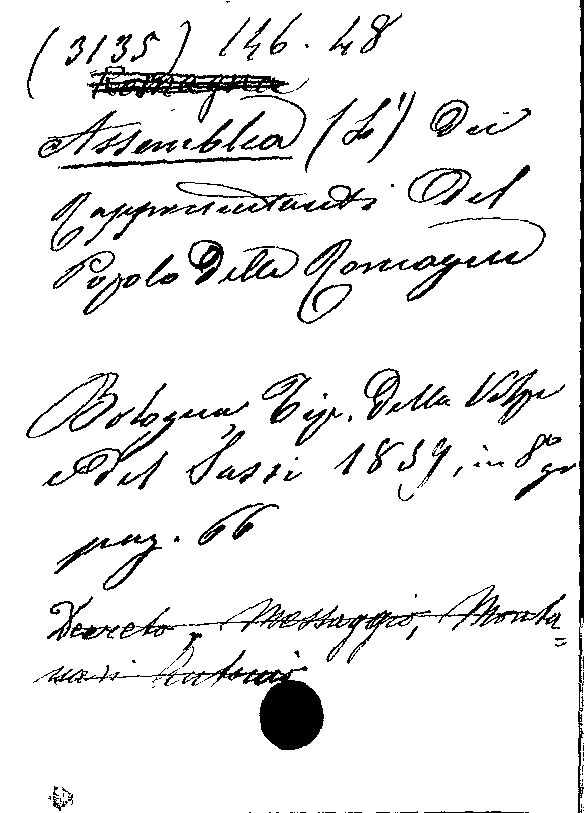 (3135) 146.48
Romagna
Assemblea (L') dei
Rappresentanti del
Popolo della Romagna
Bologna, Tip. della Volpe
e del Sassi 1859, in 8º gr
pag. 66
Decreto, Messaggio, Monta=
nari Antonio